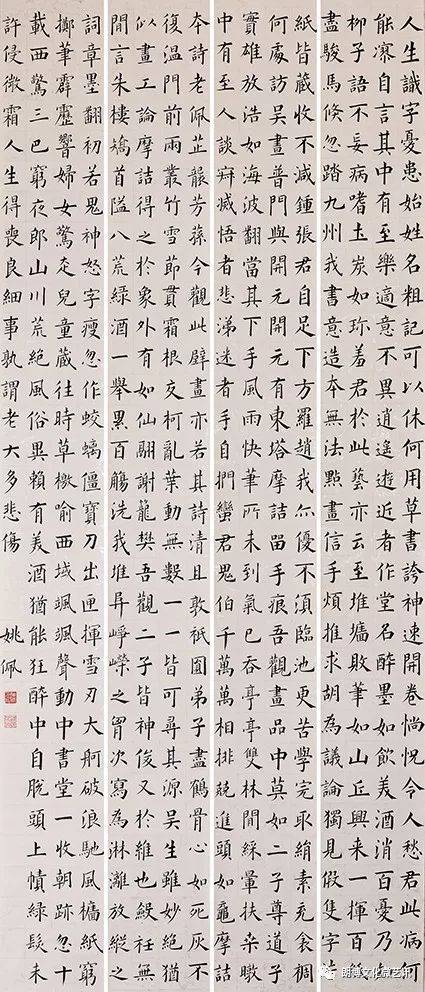 人生識字憂患始姓名粗記可以休何用草書誇神速開卷惝怳令人愁君此病何
能瘳自言其中有至樂適意不異逍遙遊近者作堂名醉墨如飲美酒消百憂乃知
柳子語不妄病嗜土炭如珍羞君於此藝亦云至堆牆敗筆如山丘興來一揮百紙
盡駿馬倏忽踏九州我書意造本無法點畫信手煩推求胡為議論獨見假隻字片
紙皆藏收不減鍾張君自足下方羅趙我亦優不須臨池更苦學完取絹素充衾裯
何處訪吳畫普門與開元開元有東塔摩詰留手痕吾觀畫品中莫如二子尊道子
實雄放浩如海波翻當其下手風雨快筆所未到氣已吞亭亭雙林間綵暈扶桑暾
中有至人談寂滅悟者悲涕迷者手自捫蠻君鬼伯千萬萬相排競進頭如黿摩詰
本詩老佩芷襲芳蓀今觀此壁畫亦若其詩清且敦祇園弟子盡鶴骨心如死灰不
復溫門前兩叢竹雪節貫霜根交柯亂葉動無數一一皆可尋其源吳生雖妙絕猶
以畫工論摩詰得之於象外有如仙翮謝籠樊吾觀二子皆神俊又於維也斂衽無
間言朱樓矯首隘八荒綠酒一舉累百觴洗我堆阜崢嶸之胸次寫為淋漓放縱之
詞章墨翻初若鬼神怒字瘦忽作蛟螭僵寶刀出匣揮雪刃大舸破浪馳風檣紙窮
擲筆霹靂響婦女驚走兒童藏往時草檄喻西域颯颯聲動中書堂一收朝跡忽十
載西驚三巴窮夜郎山川荒絕風俗異賴有美酒猶能狂醉中自脫頭上幘綠髮未
許侵微霜人生得喪良細事孰謂老大多悲傷 姚佩